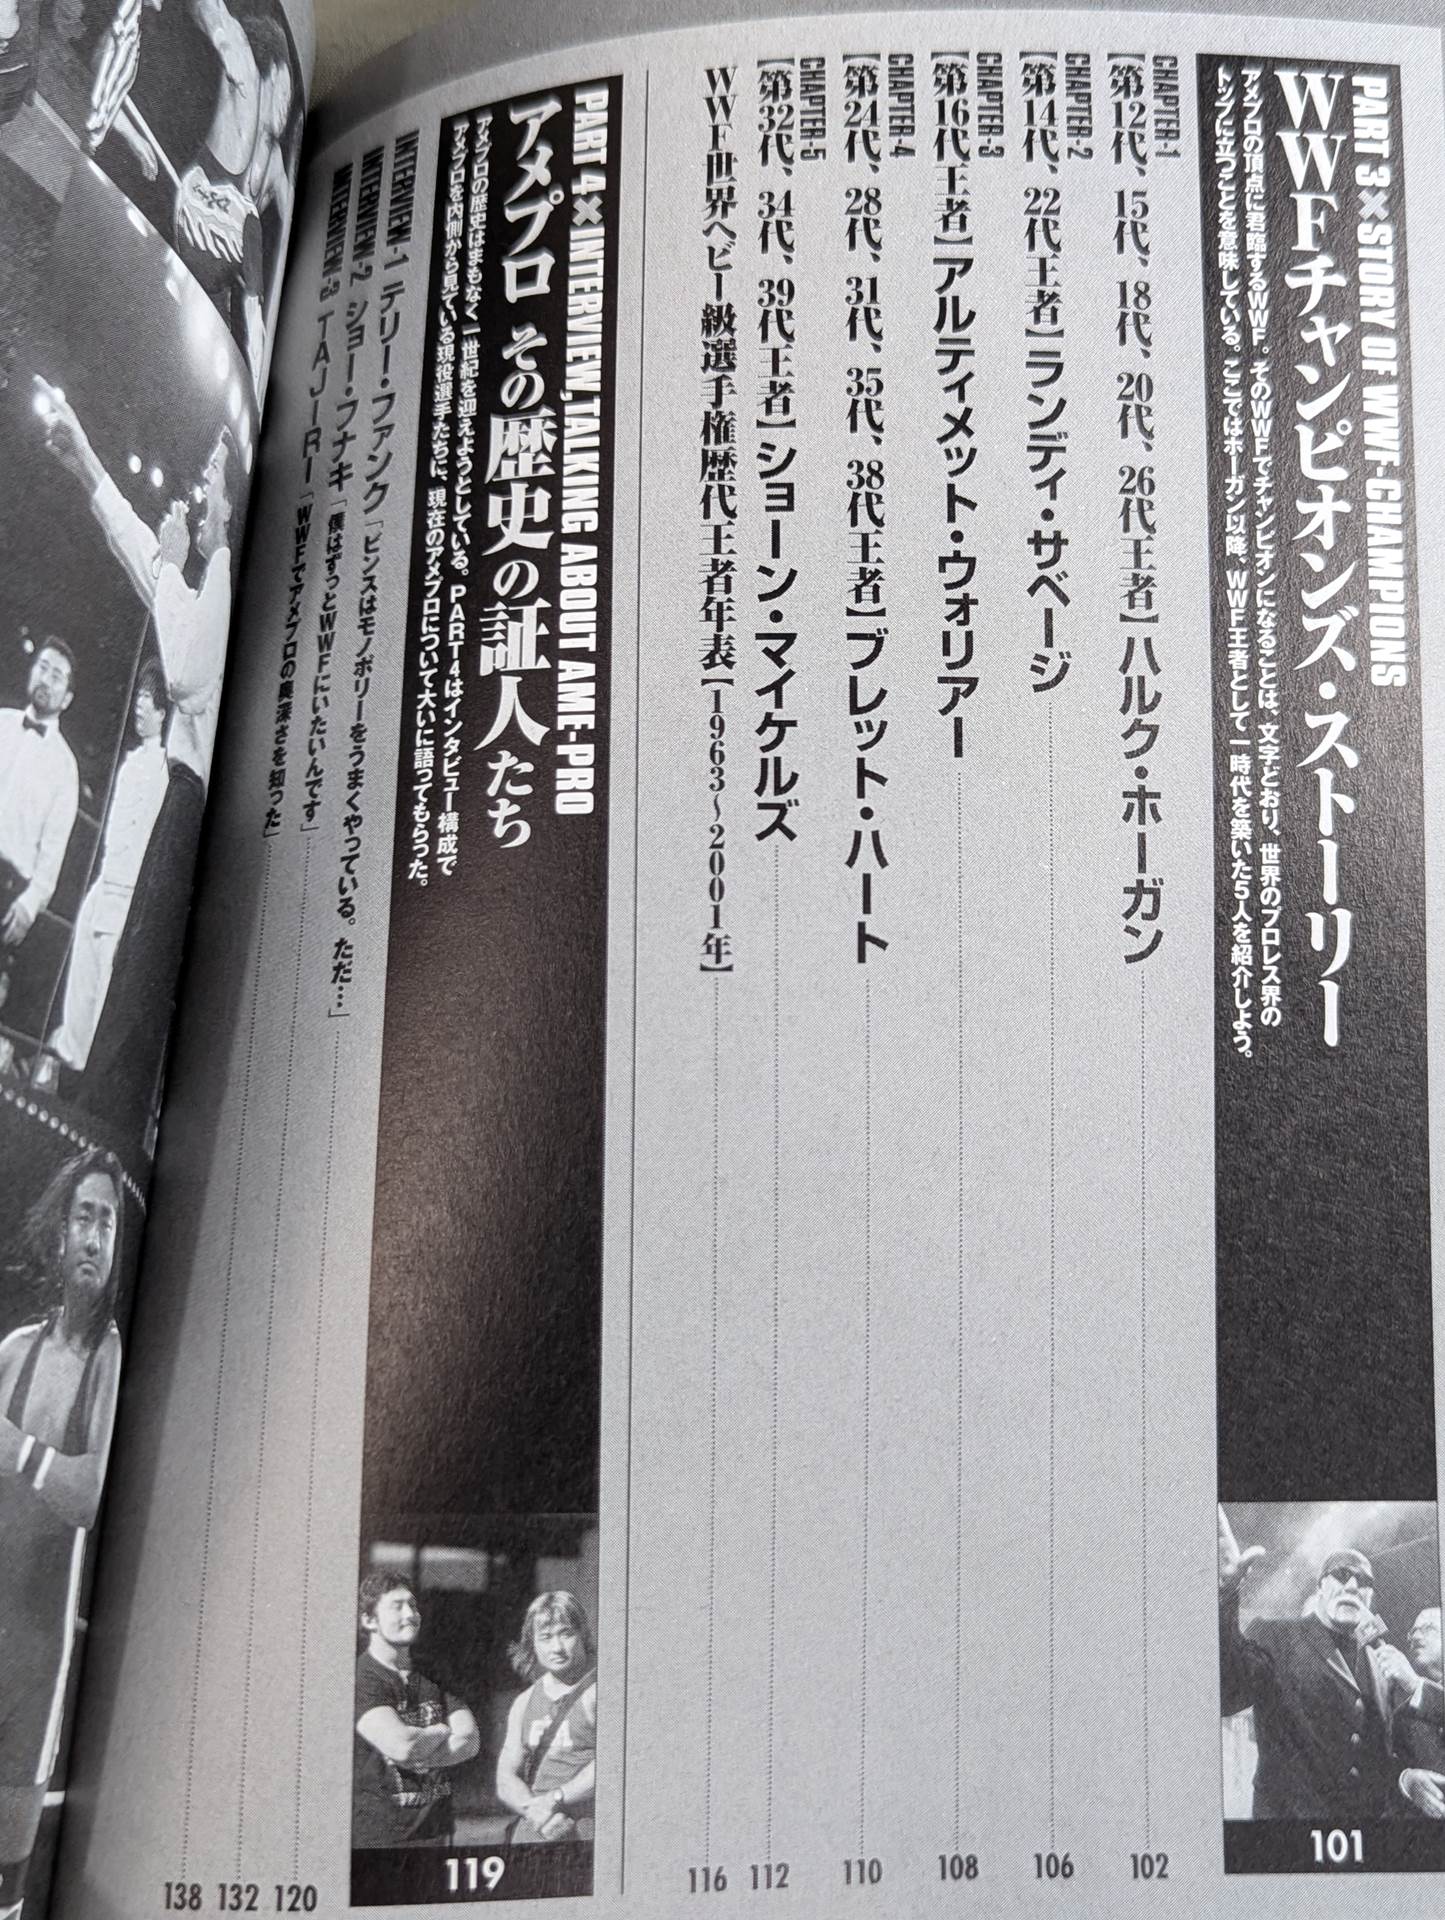 PART 3×STORY OF WWF-CHAMPIONS
WWFチャンピオンズ・ストーリー
アメプロの頂点に君臨するWWF。そのWWFでチャンピオンになることは、文字どおり、世界のプロレス界の
トップに立つことを意味している。ここではホーガン以降、WWF王者として一時代を築いた5人を紹介しよう。
101
CHAPTER-1
【第12代、15代、18代、20代、26代王者】ハルク・ホーガン
102
CHAPTER-2
【第14代、22代王者】ランディ・サベージ
106
CHAPTER-3
【第16代王者】アルティメット・ウォリアー
108
CHAPTER-4
【第24代、28代、31代、35代、38代王者】ブレット・ハート
110
CHAPTER-5
【第32代、34代、39代王者】ショーン・マイケルズ
112
WWF世界ヘビー級選手権歴代王者年表【1963〜2001年】
116
PART 4×INTERVIEW,TALKING ABOUT AME-PRO
アメプロ その歴史の証人たち
アメプロの歴史はまもなく一世紀を迎えようとしている。PART4はインタビュー構成で
アメプロを内側から見ている現役選手たちに、現在のアメプロについて大いに語ってもらった。
119
INTERVIEW-1 テリー・ファンク「ビンスはモノポリーをうまくやっている。ただ…」
120
INTERVIEW-2 ショー・フナキ「僕はずっとWWFにいたいんです」
132
INTERVIEW-3 TAJIRI「WWFでアメプロの奥深さを知った」
138